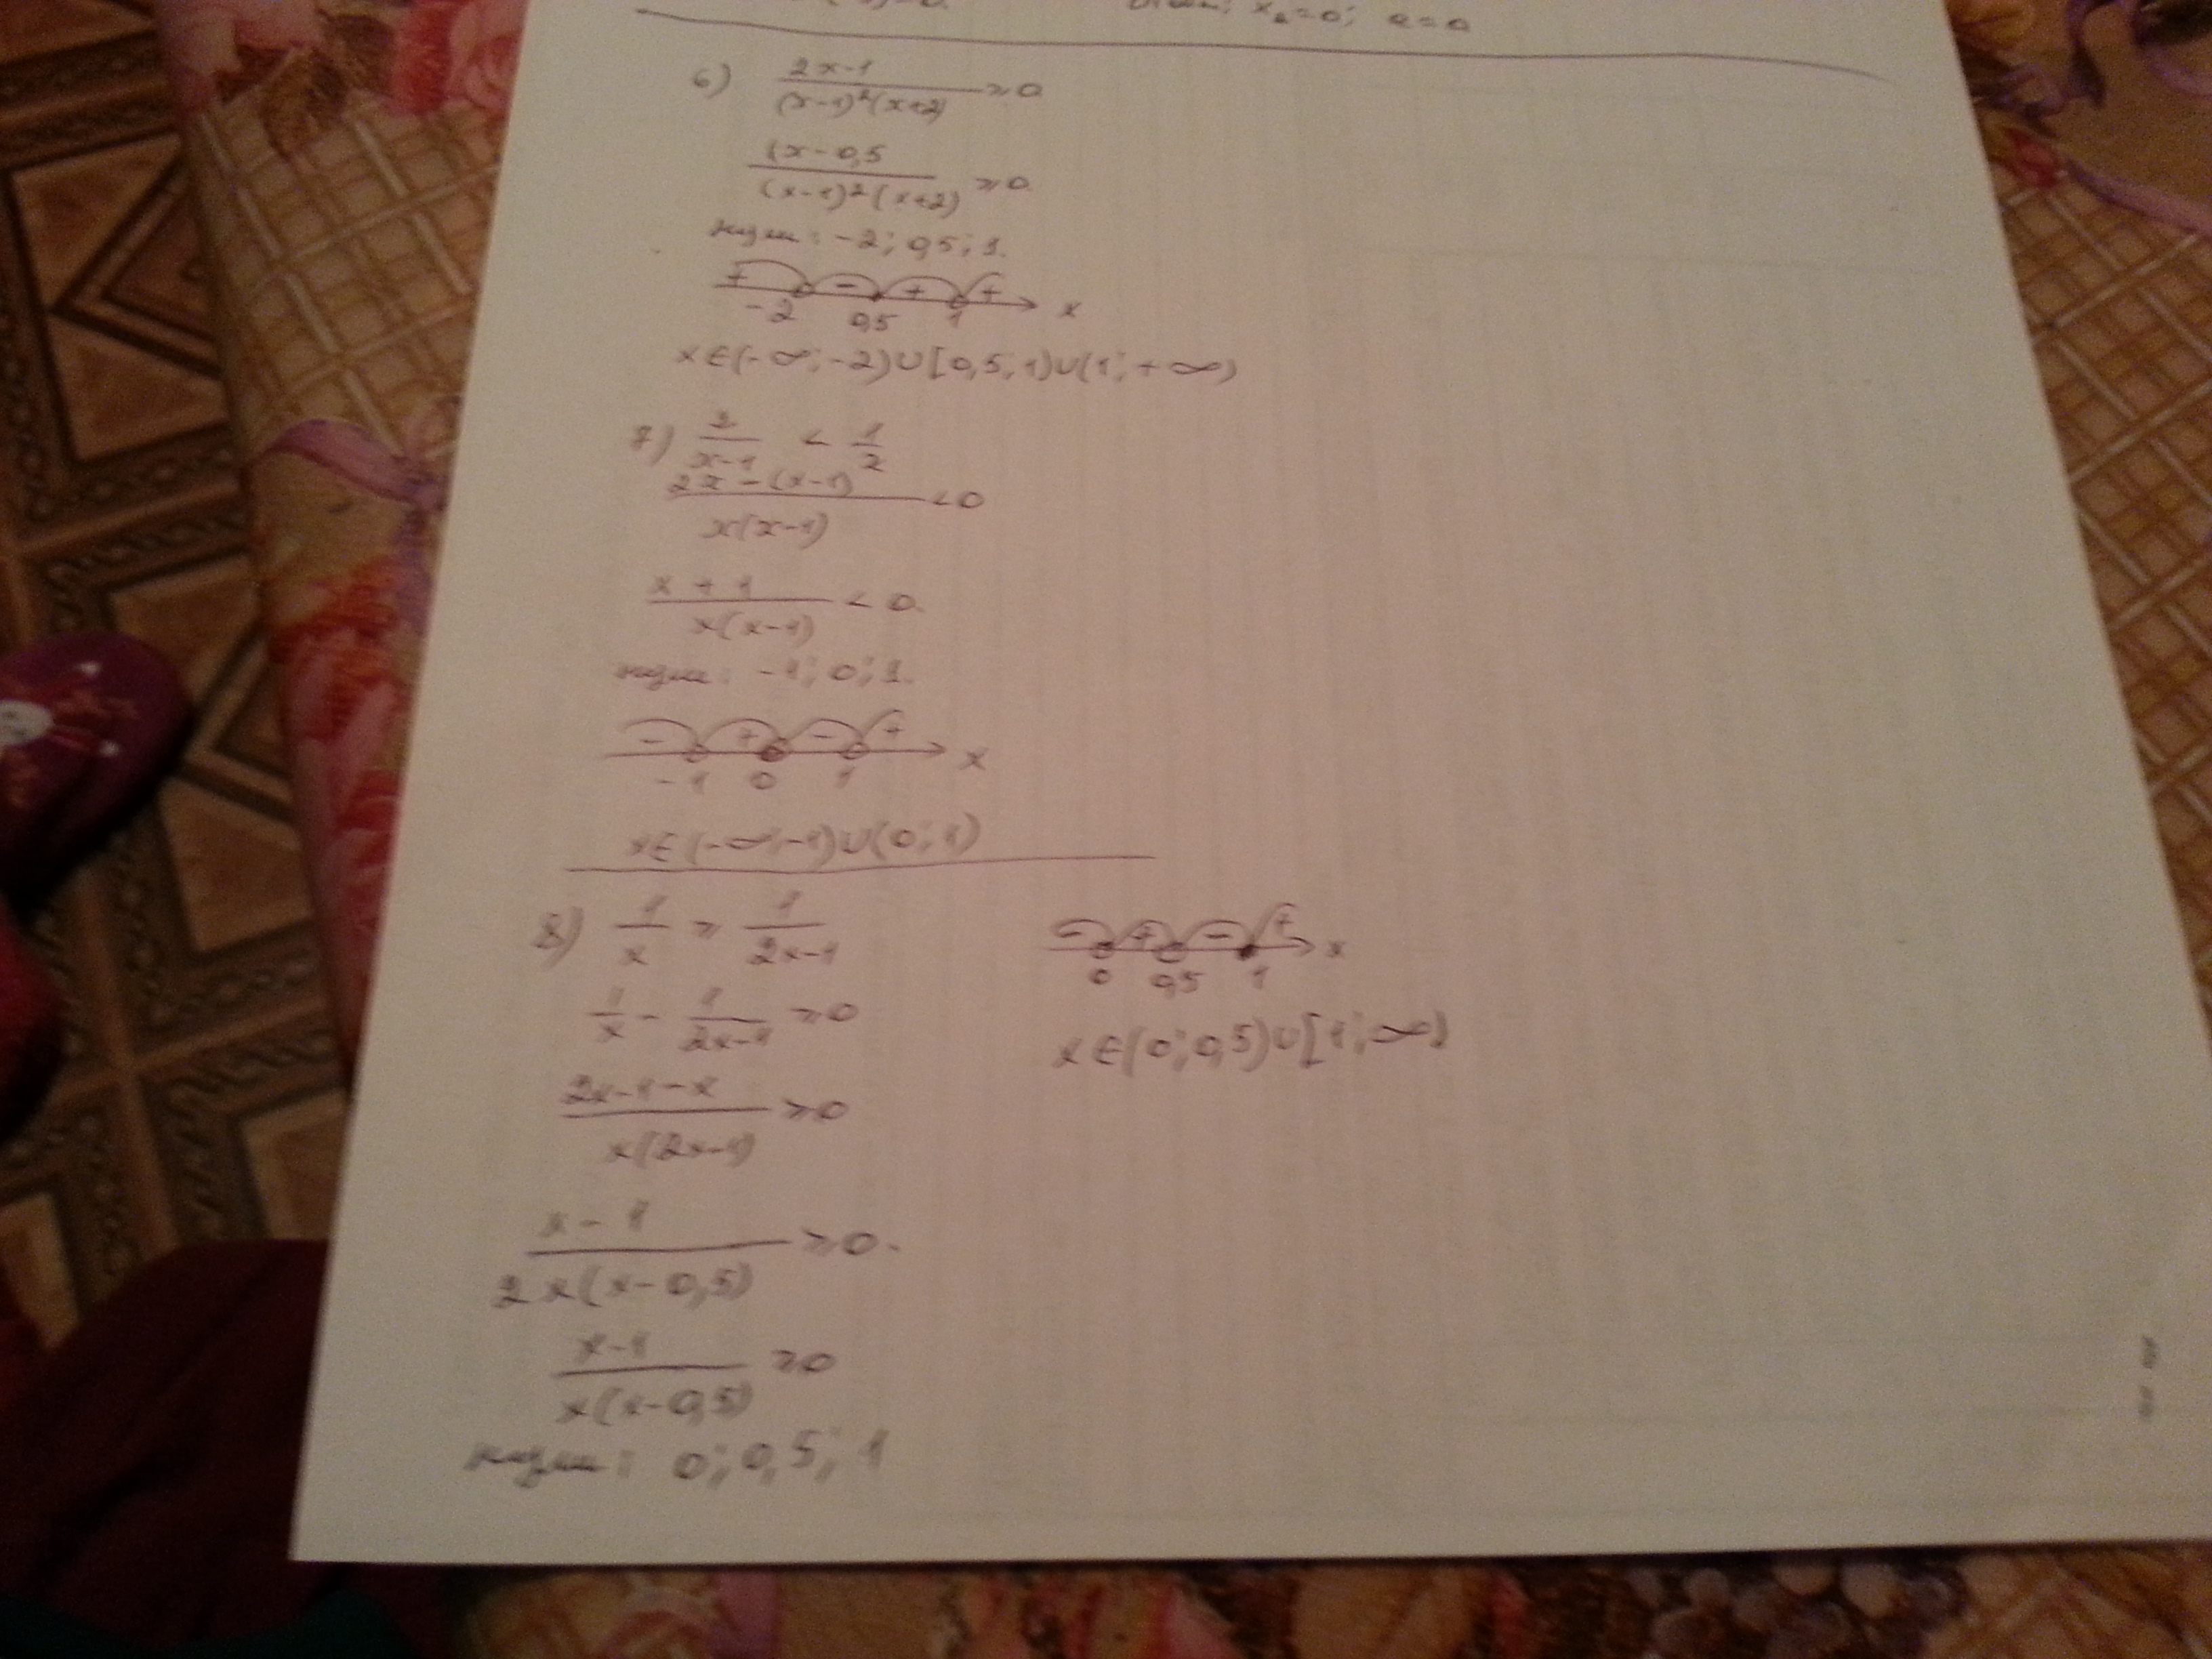 6) (2x-1)/((x-1)²(x+2)) ≥ 0
(x-0,5/((x-1)²(x+2)) ≥ 0
нули: -2; 0,5; 1.
+ - + +
-2 0,5 1 x
x∈(-∞;-2)∪[0,5;1)∪(1;+∞)
7) 2/(x-1) < 1/2
(2x-(x-1))/(x(x-1)) < 0
(x+1)/(x(x-1)) < 0
нули: -1; 0; 1.
- + - +
-1 0 1 x
x∈(-∞;-1)∪(0;1)
8) 1/x ≥ 1/(2x-1)
1/x - 1/(2x-1) ≥ 0
(2x-1-x)/(x(2x-1)) ≥ 0
(x-1)/(2x(x-0,5)) ≥ 0.
(x-1)/(x(x-0,5)) ≥ 0
нули: 0; 0,5; 1
- + - +
0 0,5 1 x
x∈(0;0,5)∪[1;∞)